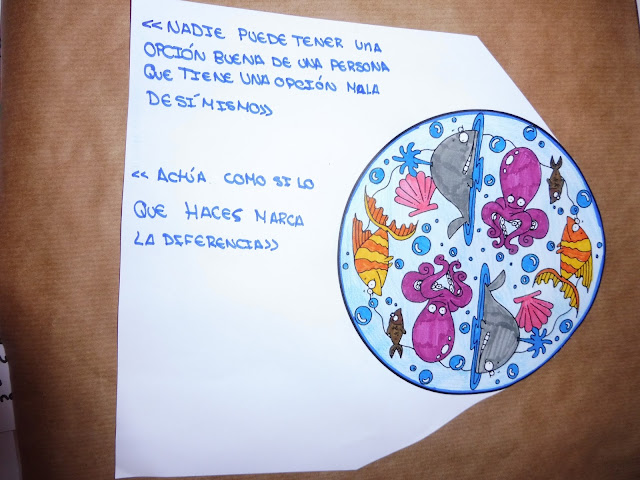 <<NADIE PUEDE TENER UNA
OPCIÓN BUENA DE UNA PERSONA
QUE TIENE UNA OPCIÓN MALA
DE SÍ MISMO>>
<<ACTÚA COMO SI LO
QUE HACES MARCA
LA DIFERENCIA>>